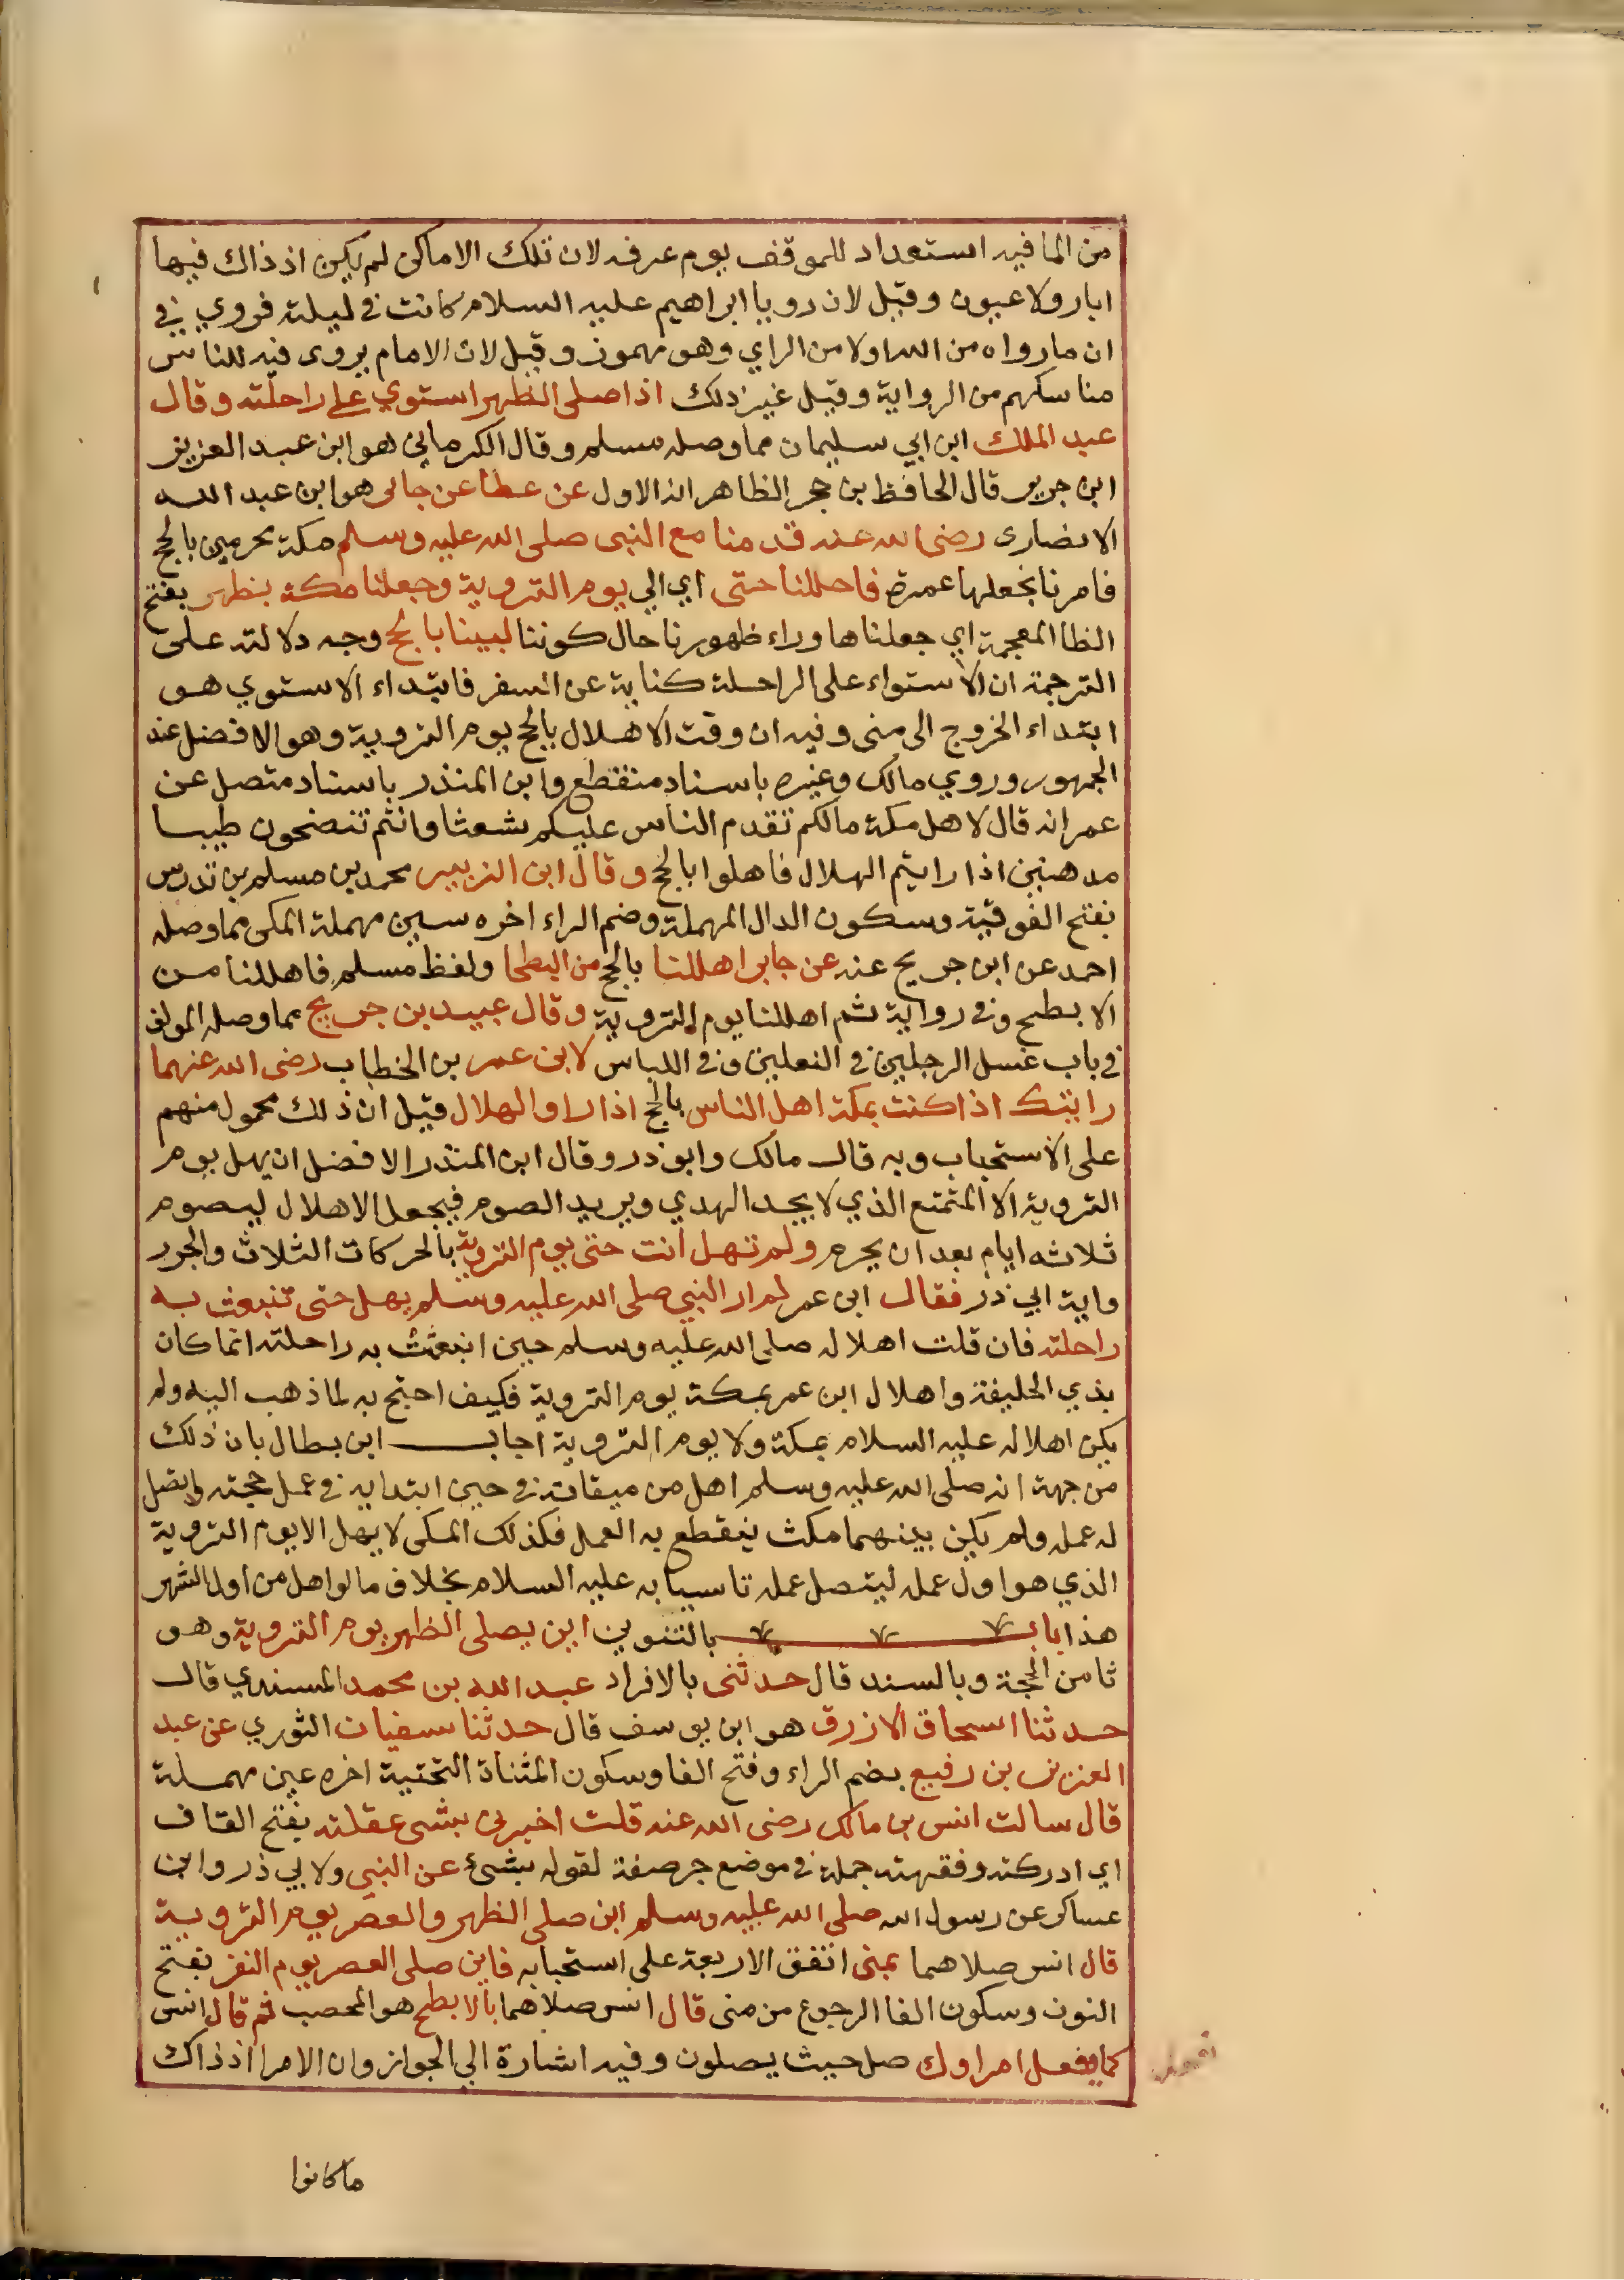 من الما فيه استعداد للموقف يوم عرفه لان تلك الاماكن لم يكن اذ ذاك فيها
ابار ولا عيون وقيل لان رويا ابراهيم عليه السلام كانت في ليلته فروي في
ان ما رواه من الله اولا من الراي وهو مهموز وقيل لان الامام يروى فيه للناس
مناسكهم من الرواية وقيل غير ذلك اذا صلى الظهر استوي على راحلته وقال
عبد الملك ابن ابي سليمان مما وصله مسلم وقال الكرماني هو ابن عبد العزيز
ابن جريج قال الحافظ بن حجر الظاهر انه الاول عن عطا عن جابر هو ابن عبد الله
الانصارى رضى الله عنه قدمنا مع النبى صلى الله عليه وسلم مكة محرمين بالحج
فامرنا نجعلها عمرة فاحللنا حتى اي الي يوم التروية وجعلنا مكة بظهر بفتح
الظا المعجمة اي جعلناها وراء ظهورنا حال كوننا لبينا بالحج وجه دلالته على
الترجمة ان الاستواء على الراحلة كناية عن السفر فابتداء الاستوي هو
ابتداء الخروج الى منى وفيه ان وقت الاهلال بالحج يوم التروية وهو الافضل عند
الجمهور وروي مالك وغيره باسناد منقطع وابن المنذر باسناد متصل عن
عمر انه قال لاهل مكة مالكم تقدم الناس عليكم شعثا وانتم تنضحون طيبا
مدهنين اذا رايتم الهلال فاهلوا بالحج وقال ابن الزبير محمد بن مسلم بن تدرس
بفتح الفوقية وسكون الدال المهملة وضم الراء اخره سين مهملة المكى مما وصله
احمد عن ابن جريج عنه عن جابر اهللنا بالحج من البطحا ولفظ مسلم فاهللنا من
الابطح وفي رواية ثم اهللنا يوم التروية وقال عبيد بن جريج مما وصله المولف
في باب غسل الرجلين في النعلين وفي اللباس لابن عمر بن الخطاب رضى الله عنهما
رايتك اذا كنت بمكة اهل الناس بالحج اذا راوا الهلال قيل ان ذلك محمول منهم
على الاستحباب وبه قال مالك وابو ذر وقال ابن المنذر الافضل ان يهل يوم
التروية الا المتمتع الذي لا يجد الهدي ويريد الصوم فيجعل الاهلال ليصوم
ثلاثه ايام بعد ان يحرم ولم تهل انت حتى يوم التروية بالحركات الثلاث والجر ر
واية ابي ذر فقال ابن عمر لم ار النبي صلى الله عليه وسلم يهل حتى تنبعث به
راحلته فان قلت اهلاله صلى الله عليه وسلم حين انبعثت به راحلته انما كان
بذي الحليفة واهلال ابن عمر بمكة يوم التروية فكيف احتج به لما ذهب اليه ولم
يكن اهلاله عليه السلام بمكة ولا يوم التروية اجاب ابن بطال بان ذلك
من جهة انه صلى الله عليه وسلم اهل من ميقاته في حين ابتدايه في عمل حجته واتصل
له عمله ولم يكن بينهما مكث ينقطع به العمل فكذلك المكى لا يهل الا يوم التروية
الذي هو اول عمله ليتصل عمله تاسيا به عليه السلام بخلاف ما لو اهل من اول الشهر
هذا باب بالتنوين اين يصلى الظهر يوم التروية وهو
ثامن الحجة وبالسند قال حدثنى بالافراد عبد الله بن محمد المسندي قال
حدثنا اسحاق الازرق هو ابن يوسف قال حدثنا سفيان الثوري عن عبد
العزيز بن رفيع بضم الراء وفتح الفا وسكون المثناة التحتية اخره عين مهملة
قال سالت انس بن مالك رضى الله عنه قلت اخبرني بشى عقلته بفتح القاف
اي ادركته وفقهته جملة في موضع جر صفة لقوله بشئ عن النبي ولابي ذر وابن
عساكر عن رسول الله صلى الله عليه وسلم اين صلى الظهر والعصر يوم التروية
قال انس صلاهما بمنى اتفق الاربعة على استحبابه فاين صلى العصر يوم النفر بفتح
النون وسكون الفا الرجوع من منى قال انس صلاهما بالابطح هو المحصب ثم قال انس
كما يفعل امراوك صل حيث يصلون وفيه اشارة الي الجواز وان الامرا اذ ذاك
ما كانوا